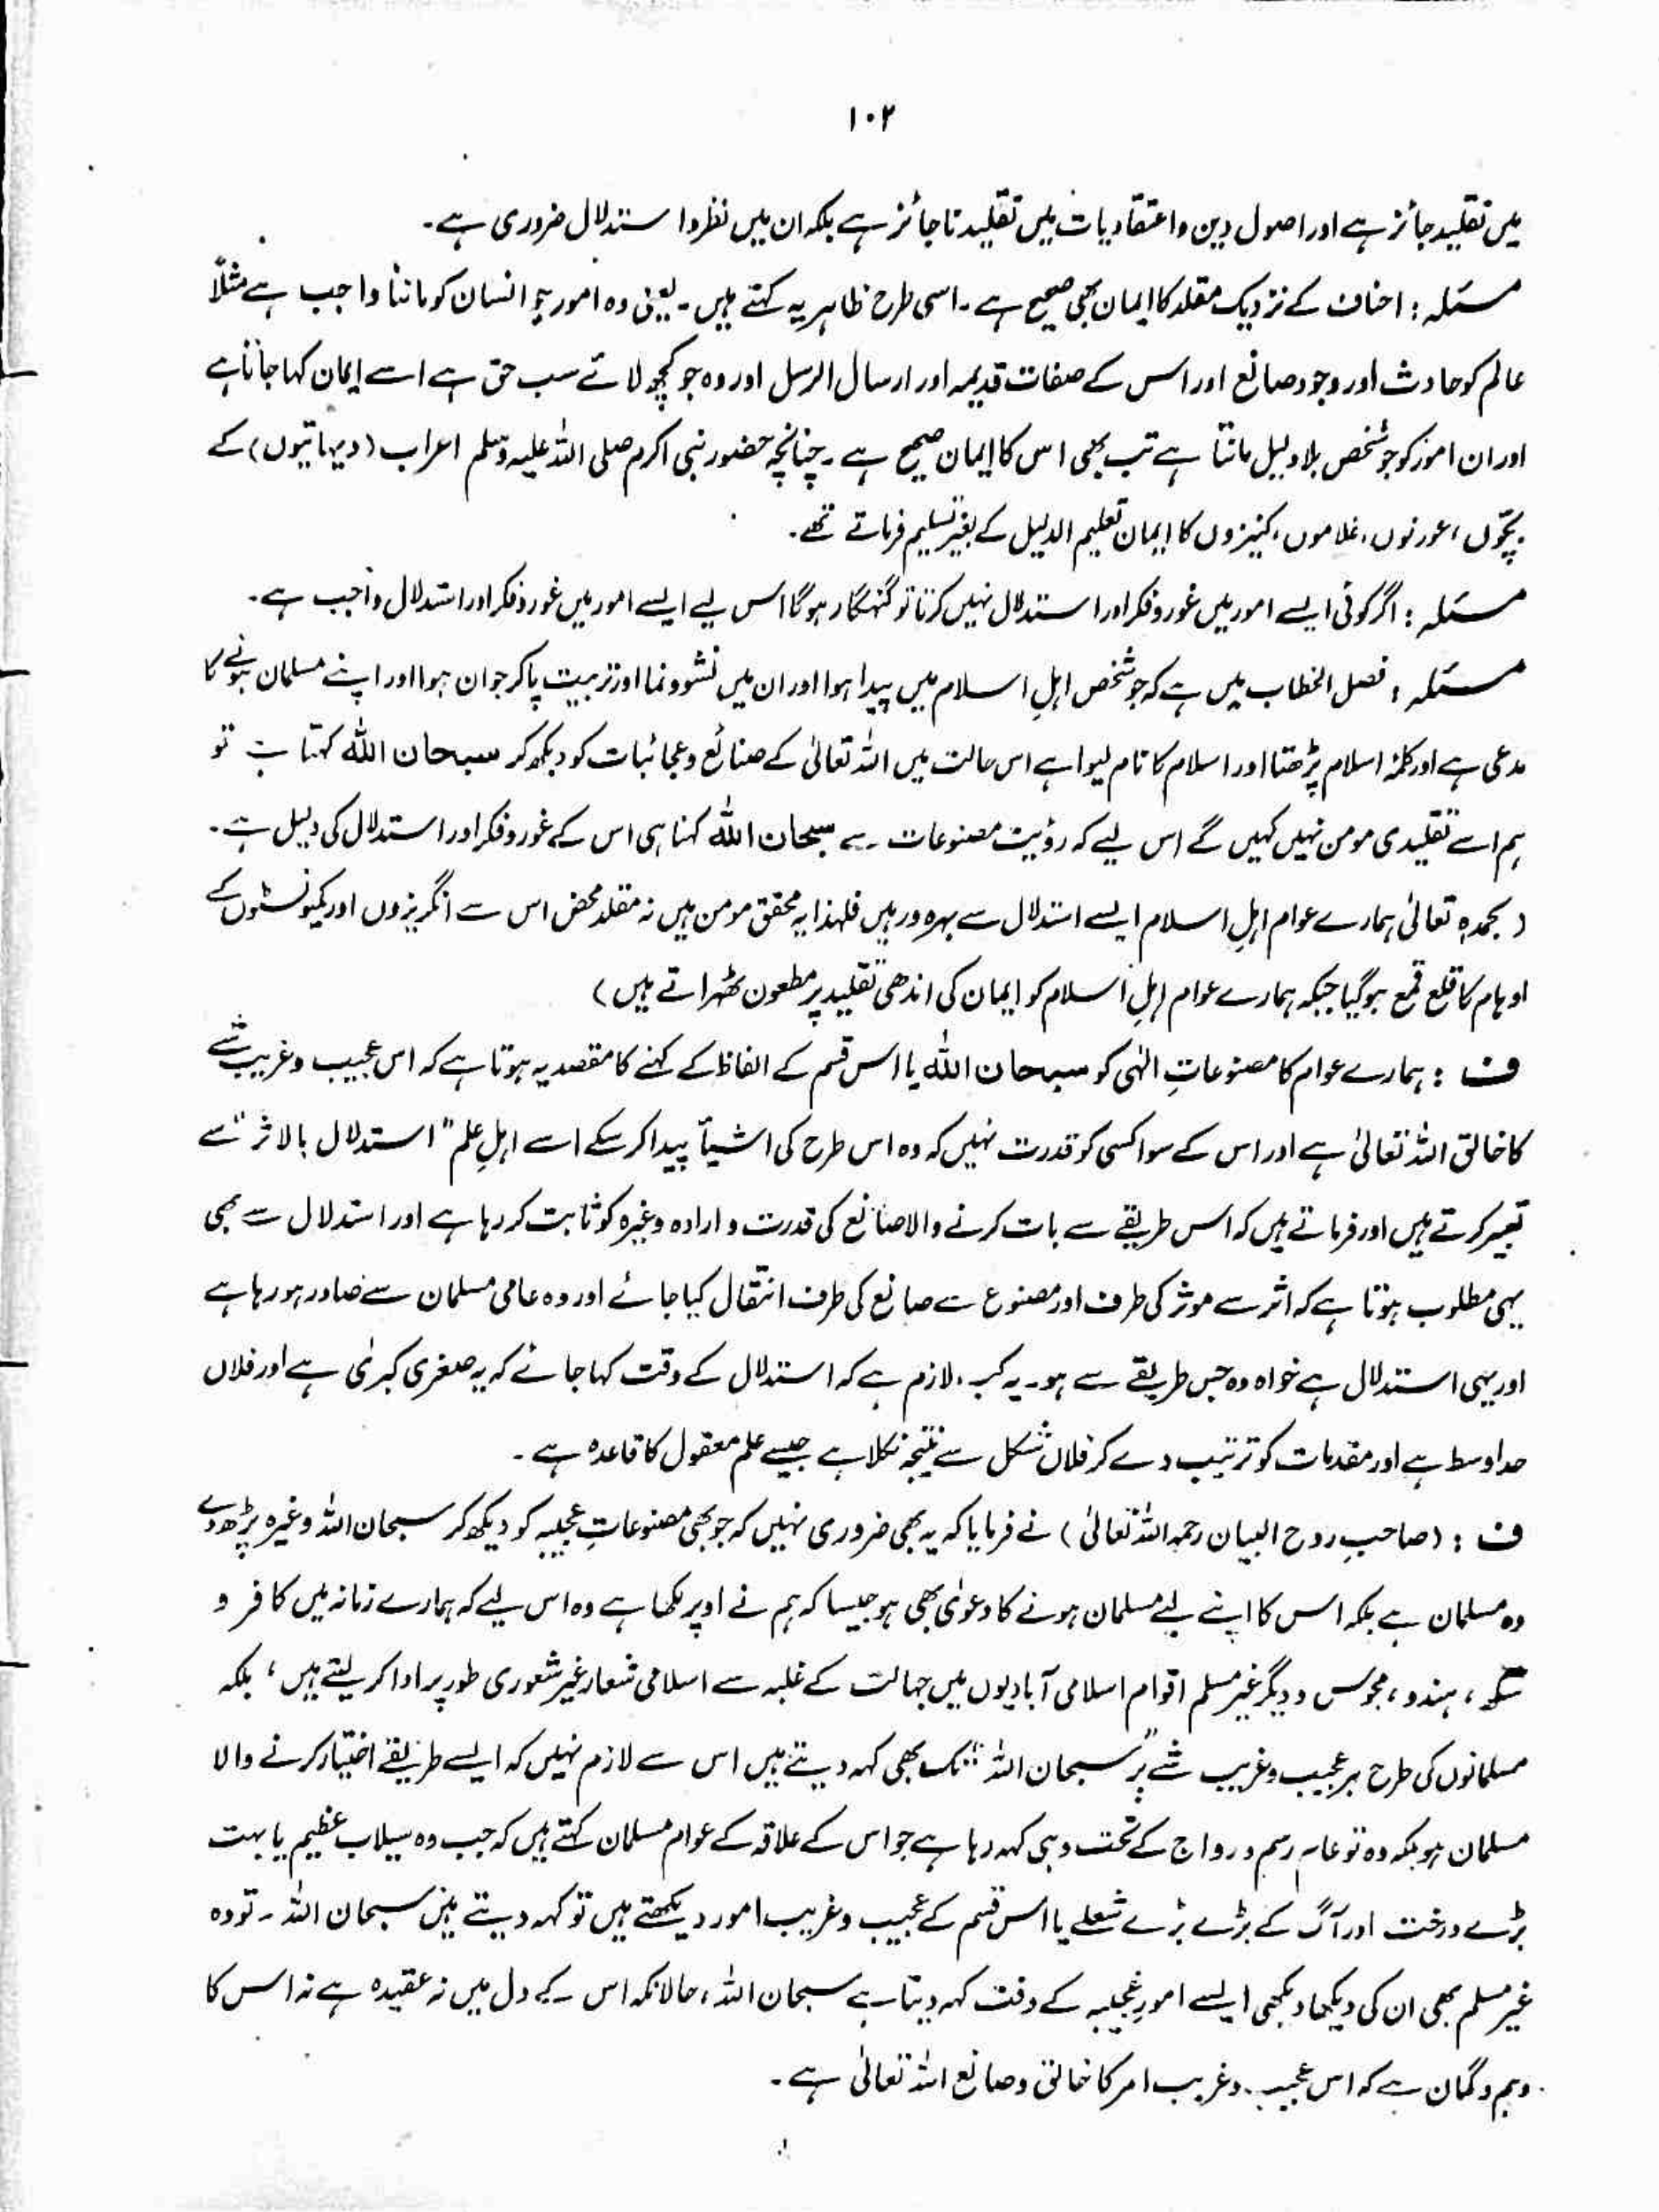 ۱۰۲
میں تقلید جائز ہے اور اصول دین و اعتقادیات میں تقلید ناجائز ہے بلکہ ان میں نظر و استدلال ضروری ہے۔
مسئلہ : احناف کے نزدیک مقلد کا ایمان بھی صحیح ہے۔ اسی طرح ظاہریہ کہتے ہیں۔ یعنی وہ امور جو انسان کو ماننا واجب ہے مثلاً
عالم کو حادث اور وجود صانع اور اس کے صفات قدیمہ اور ارسال الرسل اور وہ جو کچھ لائے سب حق ہے اسے ایمان کہا جاتا ہے
اور ان امور کو جو شخص بلا دلیل مانتا ہے تب بھی اس کا ایمان صحیح ہے۔ چنانچہ حضور نبی اکرم صلی اللہ علیہ وسلم اعراب (دیہاتیوں) کے
بچّوں ، عورتوں ، غلاموں ، کنیزوں کا ایمان تعلیم الدلیل کے بغیر تسلیم فرماتے تھے۔
مسئلہ : اگر کوئی ایسے امور میں غور و فکر اور استدلال نہیں کرتا تو گنہگار ہوگا اس لیے ایسے امور میں غور و فکر اور استدلال واجب ہے۔
مسئلہ : فصل الخطاب میں ہے کہ جو شخص اہلِ اسلام میں پیدا ہوا اور ان میں نشوونما اور تربیت پا کر جوان ہوا اور اپنے مسلمان ہونے کا
مدعی ہے اور کلمۂ اسلام پڑھتا اور اسلام کا نام لیوا ہے اس حالت میں اللہ تعالیٰ کے صنائع و عجائبات کو دیکھ کر سبحان اللّٰہ کہتا ہے تو
ہم اسے تقلیدی مومن نہیں کہیں گے اس لیے کہ رؤیت مصنوعات سے سبحان اللّٰہ کہنا ہی اس کے غور و فکر اور استدلال کی دلیل ہے۔
( بحمدہٖ تعالیٰ ہمارے عوام اہلِ اسلام ایسے استدلال سے بہرہ ور ہیں فلہٰذا یہ محقق مومن ہیں نہ مقلد محض اس سے انگریزوں اور کمیونسٹوں کے
اوہام کا قلع قمع ہوگیا جبکہ ہمارے عوام اہلِ اسلام کو ایمان کی اندھی تقلید پر مطعون ٹھہراتے ہیں )
ف : ہمارے عوام کا مصنوعاتِ الٰہی کو سبحان اللّٰہ یا اس قسم کے الفاظ کے کہنے کا مقصد یہ ہوتا ہے کہ اس عجیب و غریب شے
کا خالق اللہ تعالیٰ ہے اور اس کے سوا کسی کو قدرت نہیں کہ وہ اس طرح کی اشیأ پیدا کر سکے اسے اہلِ علم "استدلال بالاثر" سے
تعبیر کرتے ہیں اور فرماتے ہیں کہ اس طریقے سے بات کرنے والا صانع کی قدرت و ارادہ وغیرہ کو ثابت کر رہا ہے اور استدلال سے بھی
یہی مطلوب ہوتا ہے کہ اثر سے موثر کی طرف اور مصنوع سے صانع کی طرف انتقال کیا جائے اور وہ عامی مسلمان سے صادر ہو رہا ہے
اور یہی استدلال ہے خواہ وہ جس طریقے سے ہو۔ یہ کب لازم ہے کہ استدلال کے وقت کہا جائے کہ یہ صغریٰ کبریٰ ہے اور فلاں
حد اوسط ہے اور مقدمات کو ترتیب دے کر فلاں شکل سے نتیجہ نکلا ہے جیسے علم معقول کا قاعدہ ہے۔
ف : (صاحبِ روح البیان رحمہ اللہ تعالیٰ) نے فرمایا کہ یہ بھی ضروری نہیں کہ جو بھی مصنوعاتِ عجیبہ کو دیکھ کر سبحان اللہ وغیرہ پڑھ دے
وہ مسلمان ہے بلکہ اس کا اپنے لیے مسلمان ہونے کا دعوٰی بھی ہو جیسا کہ ہم نے اوپر لکھا ہے وہ اس لیے کہ ہمارے زمانہ میں کافر و
سکھ ، ہندو ، مجوس و دیگر غیر مسلم اقوام اسلامی آبادیوں میں جہالت کے غلبہ سے اسلامی شعار غیر شعوری طور پر ادا کر لیتے ہیں ، بلکہ
مسلمانوں کی طرح ہر عجیب و غریب شے پر "سبحان اللہ" تک بھی کہہ دیتے ہیں اس سے لازم نہیں کہ ایسے طریقے اختیار کرنے والا
مسلمان ہو بلکہ وہ تو عام رسم و رواج کے تحت وہی کہہ رہا ہے جو اس کے علاقہ کے عوام مسلمان کہتے ہیں کہ جب وہ سیلاب عظیم یا بہت
بڑے درخت اور آگ کے بڑے بڑے شعلے یا اس قسم کے عجیب و غریب امور دیکھتے ہیں تو کہہ دیتے ہیں سبحان اللہ۔ تو وہ
غیر مسلم بھی ان کی دیکھا دیکھی ایسے امورِ عجیبہ کے وقت کہہ دیتا ہے سبحان اللہ ، حالانکہ اس کے دل میں نہ عقیدہ ہے نہ اس کا
وہم و گمان ہے کہ اس عجیب و غریب امر کا خالق و صانع اللہ تعالیٰ ہے۔